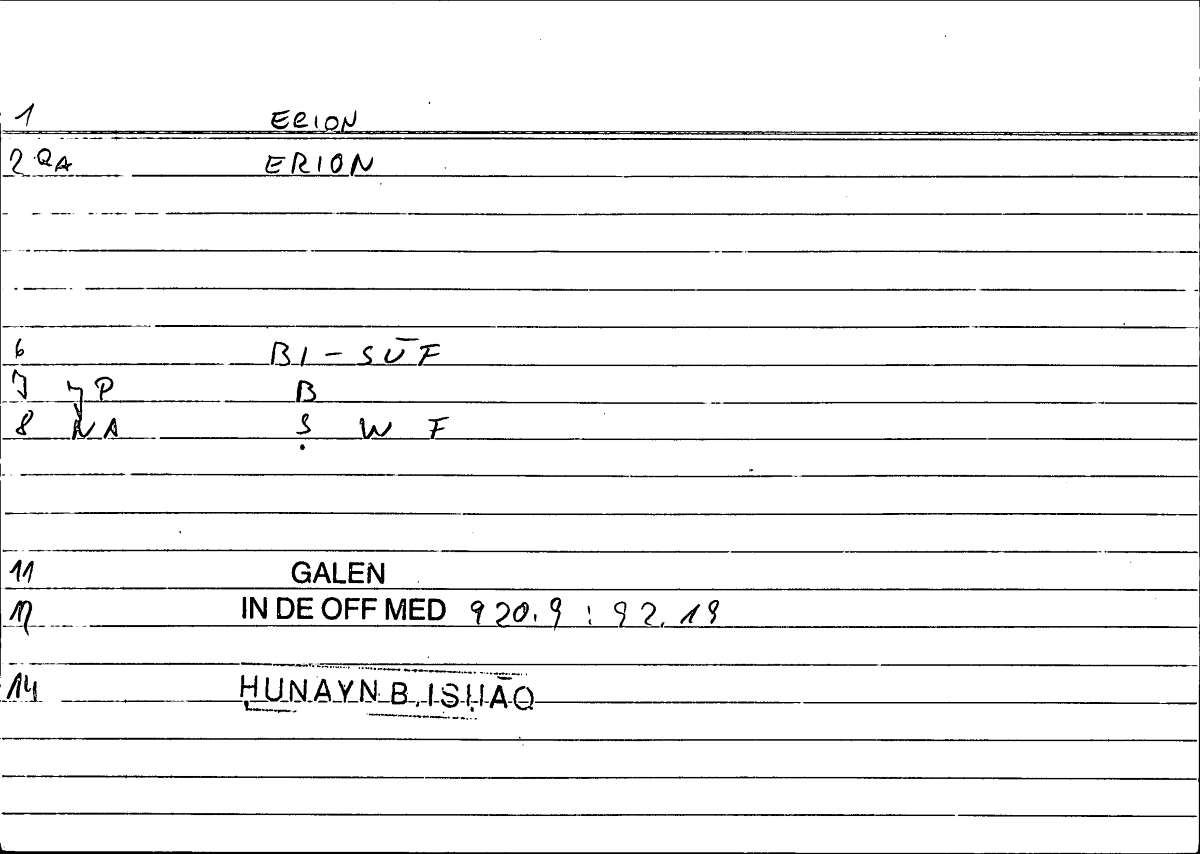 1 ERION
2 QA ERION
6 BI-SŪF
7 P B
8 NA Ṣ W F
11 GALEN
12 IN DE OFF MED 920.9 : 92.19
14 ḤUNAYN B. ISḤĀQ